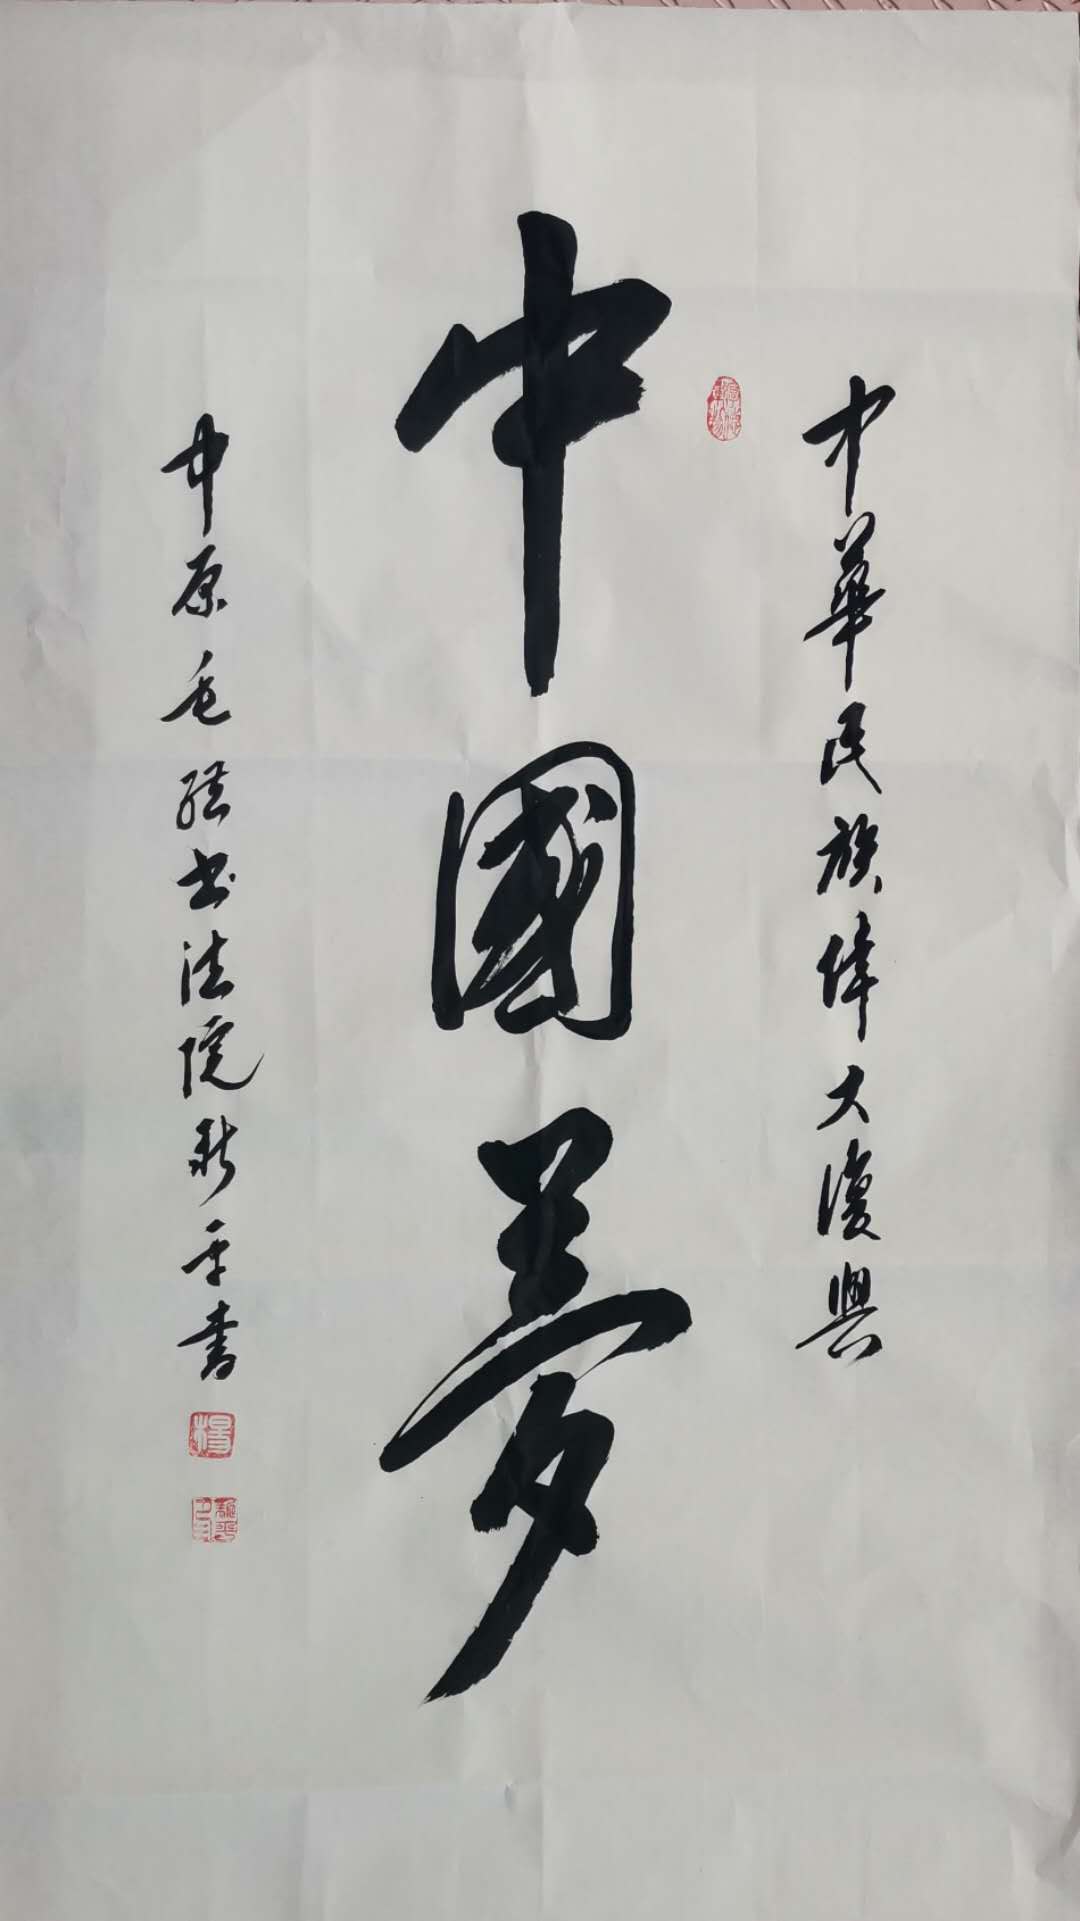 中華民族偉大復興
中國夢
中原毛體书法院新平書
楊